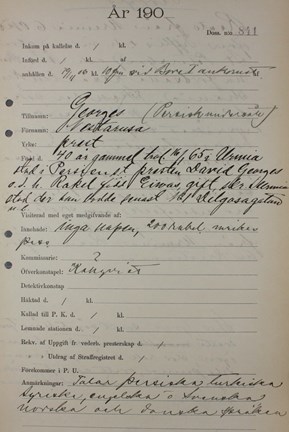 År 190
Doss. n:o 811
Inkom på kallelse d. / kl.
Införd d. / kl.
anhållen d. 19/11 06 10 fm
Tillnamn: Georges (Persisk undersåte)
Förnamn:
Yrke: prest
Född d. 40 år gammal född 16/1 65 i Urmia
stad i Persien af prosten David Georges
o. d. h. Rakel född gift
sted der han bodde senast
Visiterad med eget medgifvande af:
Innehade: inga vapen, 200 rubel,
pass
Kommissarie: ?
Öfverkonstapel:
Detektivkonstap
Häktad d. / kl.
Kallad till P. K. d. / kl.
Lemnade stationen d. / kl.
Rekv. af Uppgift fr. vederb. presterskap d. /
» » Utdrag af Straffregistret d. /
Förekommer i P. U.
Anmärkningar: Talar persiska, turkiska
syriska, engelska o svenska
norska och danska språken